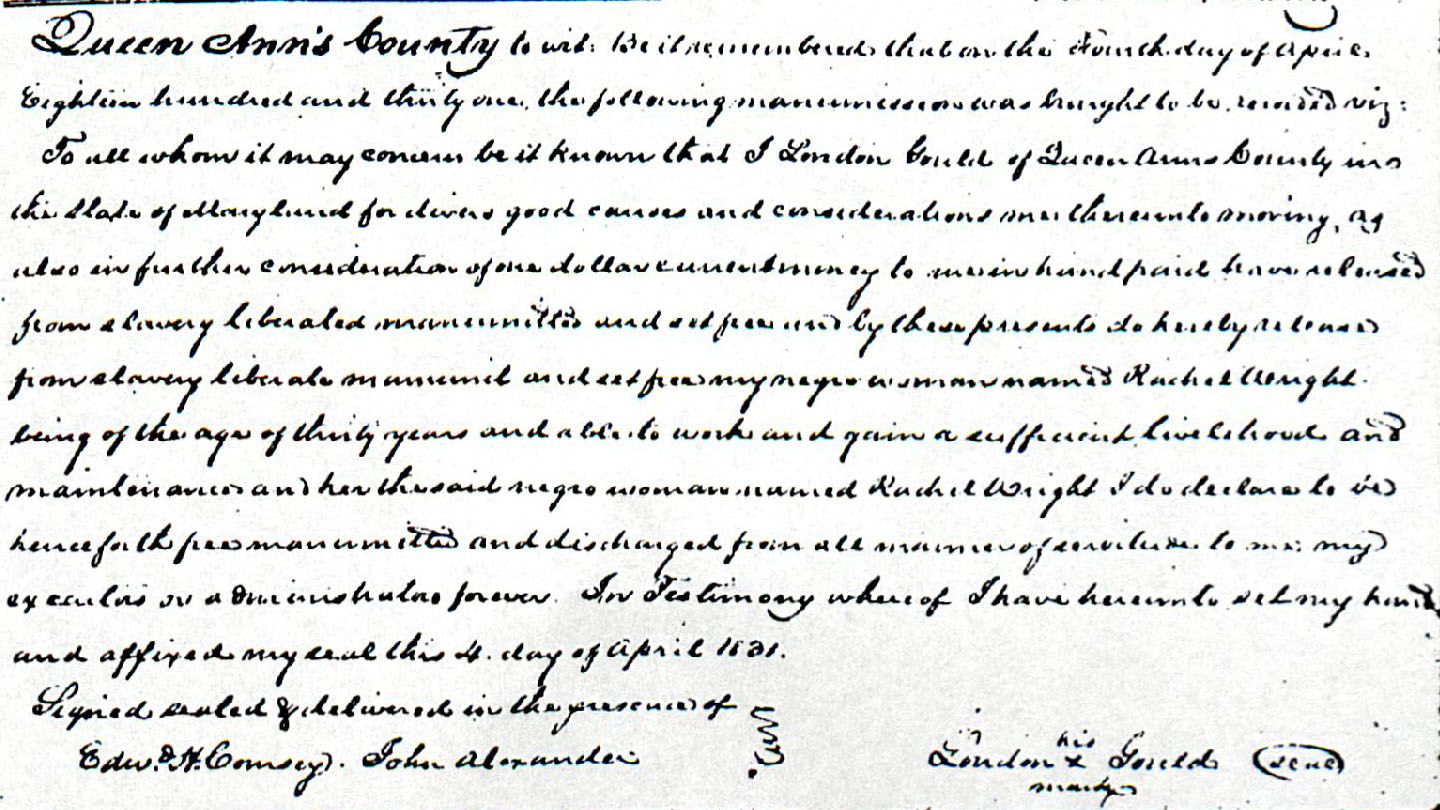 Queen Ann's County to wit: Be it remembered that on the Fourth day of April
Eighteen hundred and thirty one, the following manumission was brought to be recorded viz:
To all whom it may concern be it known that I London Gould of Queen Anns County in
the State of Maryland for divers good causes and considerations me thereunto moving, as
also in further consideration of one dollar current money to me in hand paid have released
from slavery liberated manumitted and set free and by these presents do hereby release
from slavery liberate manumit and set free my negro woman named Rachel Wright
being of the age of thirty years and able to work and gain a sufficient livelihood and
maintenance and her the said negro woman named Rachel Wright I do declare to be
henceforth free manumitted and discharged from all manner of servitude to me my
executors or administrators forever. In Testimony whereof I have hereunto set my hand
and affixed my seal this 4. day of April 1831.
Signed sealed & delivered in the presence of
Edwd. H. Comsey. John Alexander
his
London x Gould (seal)
mark